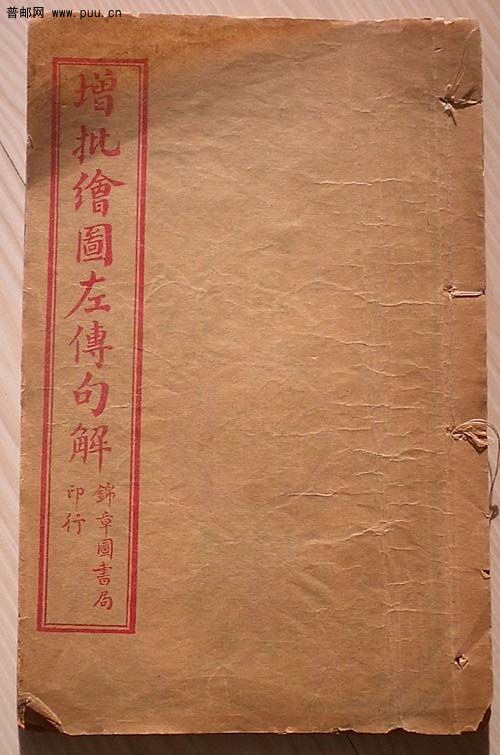 普邮网 www.puu.cn
增批繪圖左傳句解
錦章圖書局
印行